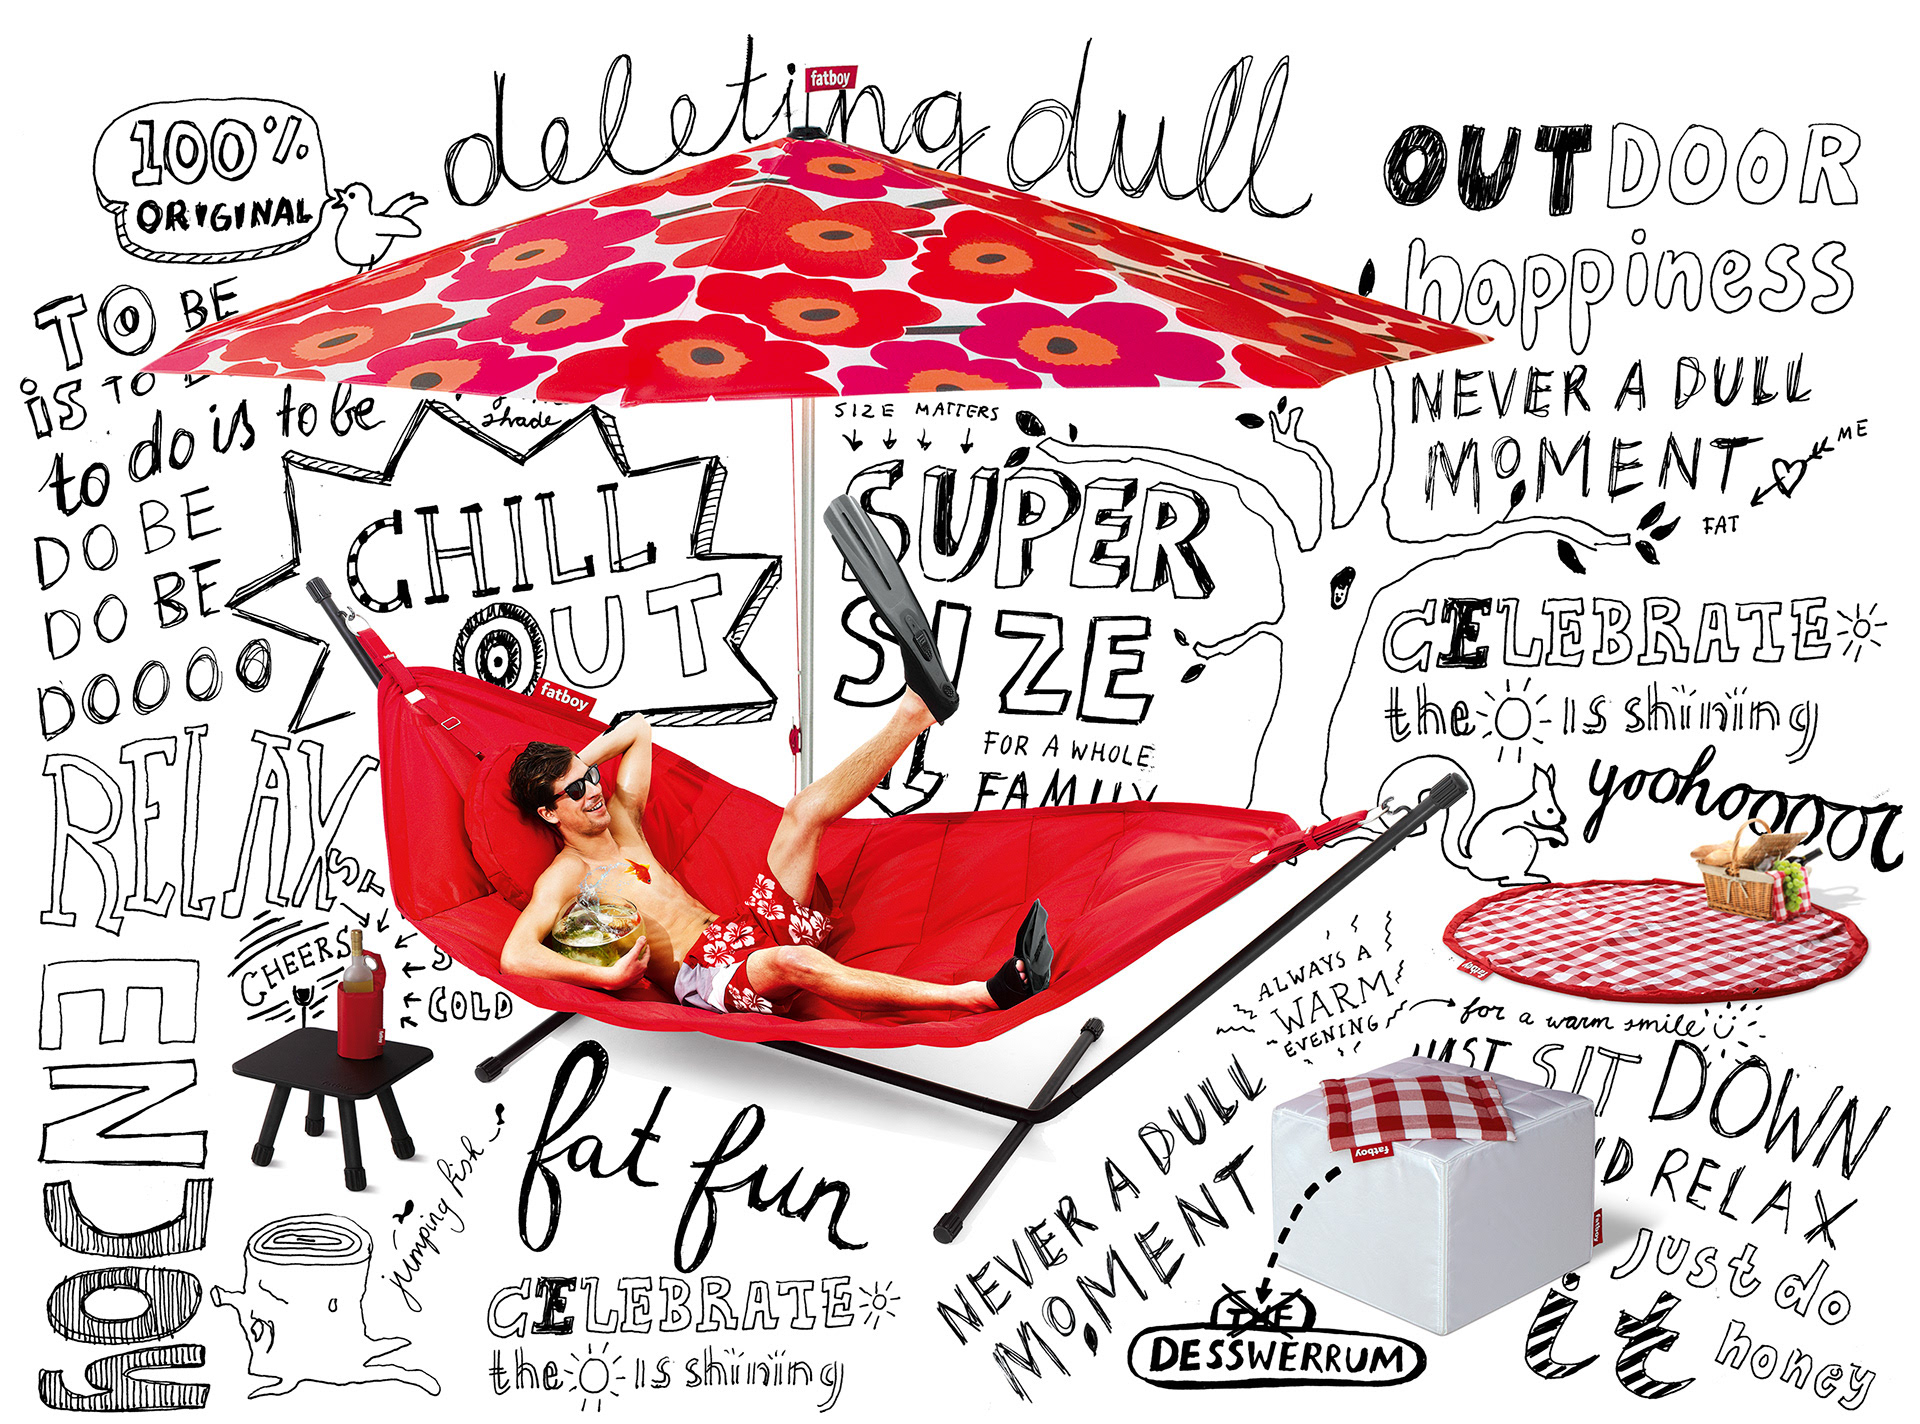 deleting dull
fatboy
100%
ORIGINAL
TO BE
is TO
to do is to be
DO BE
DO BE
DOOOO
RELAX
shade
CHILL
OUT
SIZE MATTERS
SUPER
SIZE
FOR A WHOLE
FAMILY
OUTDOOR
happiness
NEVER A DULL
MOMENT
ME
FAT
CELEBRATE
the is shining
yoohoooooor
fatboy
CHEERS
COLD
fatboy
ALWAYS A
WARM
EVENING
for a warm smile
fatboy
JUST SIT DOWN
RELAX
just do
it
honey
fatboy
fatboy
fat fun
jumping fish
CELEBRATE
the is shining
NEVER A DULL
MOMENT
THE
DESSWERRUM